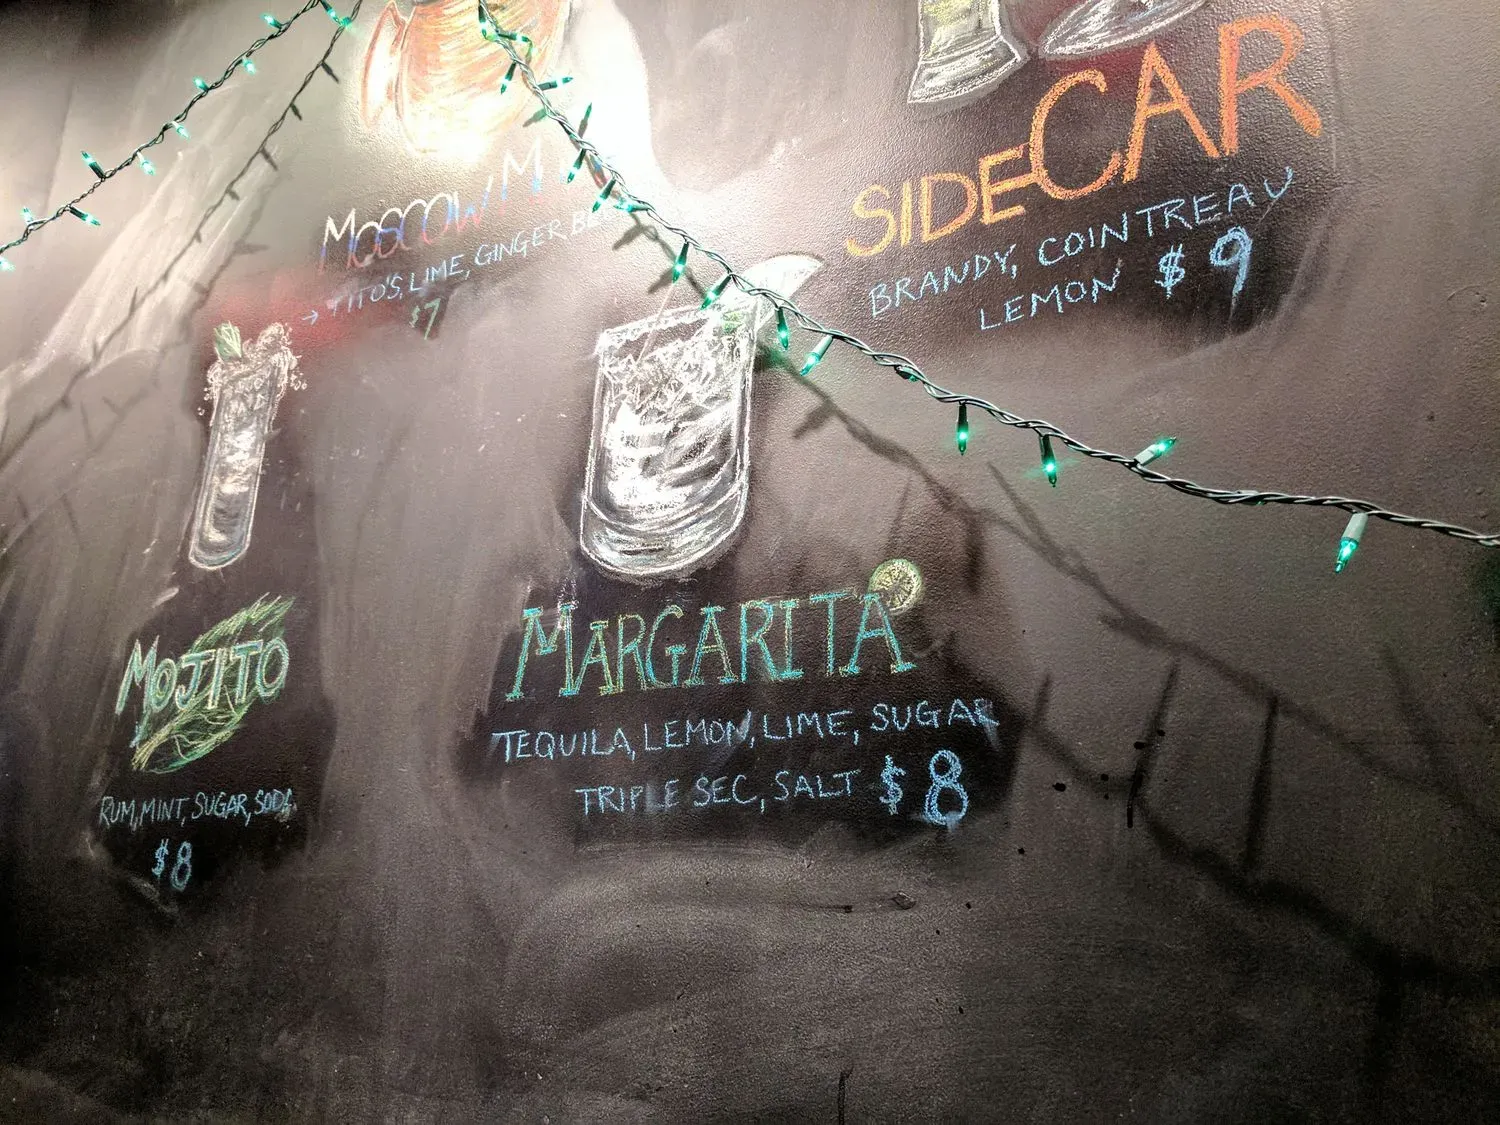 MOSCOW M
→ TITO'S, LIME, GINGER
$7
SIDECAR
BRANDY, COINTREAU
LEMON $9
MOJITO
RUM, MINT, SUGAR, SODA
$8
MARGARITA
TEQUILA, LEMON, LIME, SUGAR
TRIPLE SEC, SALT $8